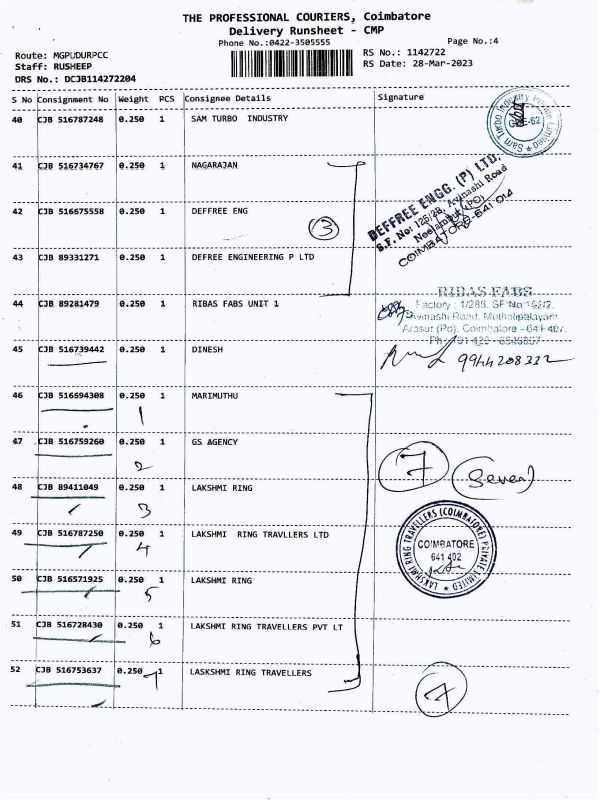 THE PROFESSIONAL COURIERS, Coimbatore
Delivery Runsheet - CMP
Phone No.:0422-3505555
Page No.:4
Route: MGPUDURPCC
RS No.: 1142722
Staff: RUSHEEP
RS Date: 28-Mar-2023
DRS No.: DCJB114272204
S No Consignment No Weight PCS Consignee Details Signature
40 CJB 516787248 0.250 1 SAM TURBO INDUSTRY
41 CJB 516734767 0.250 1 NAGARAJAN
DEFFREE ENGG. (P) LTD.
S.F. No: 125/2B, Avinashi Road
Neelambur (PO)
COIMBATORE-641 014
42 CJB 516675558 0.250 1 DEFFREE ENG
3
43 CJB 89331271 0.250 1 DEFREE ENGINEERING P LTD
RIBAS FABS
44 CJB 89281479 0.250 1 RIBAS FABS UNIT 1
Avinashi Road, Muthalipalayam
Arasur (Po), Coimbatore - 641 407.
45 CJB 516739442 0.250 1 DINESH
9944208332
46 CJB 516694308 0.250 1 MARIMUTHU
1
47 CJB 516759260 0.250 1 GS AGENCY
2
7 (Seven)
48 CJB 89411049 0.250 1 LAKSHMI RING
3
49 CJB 516787250 0.250 1 LAKSHMI RING TRAVLLERS LTD
4
LAKSHMI RING TRAVELLERS (COIMBATORE) PRIVATE LIMITED
COIMBATORE
641 402
50 CJB 516571925 0.250 1 LAKSHMI RING
5
51 CJB 516728430 0.250 1 LAKSHMI RING TRAVELLERS PVT LT
6
52 CJB 516753637 0.250 1 LASKSHMI RING TRAVELLERS
7
7